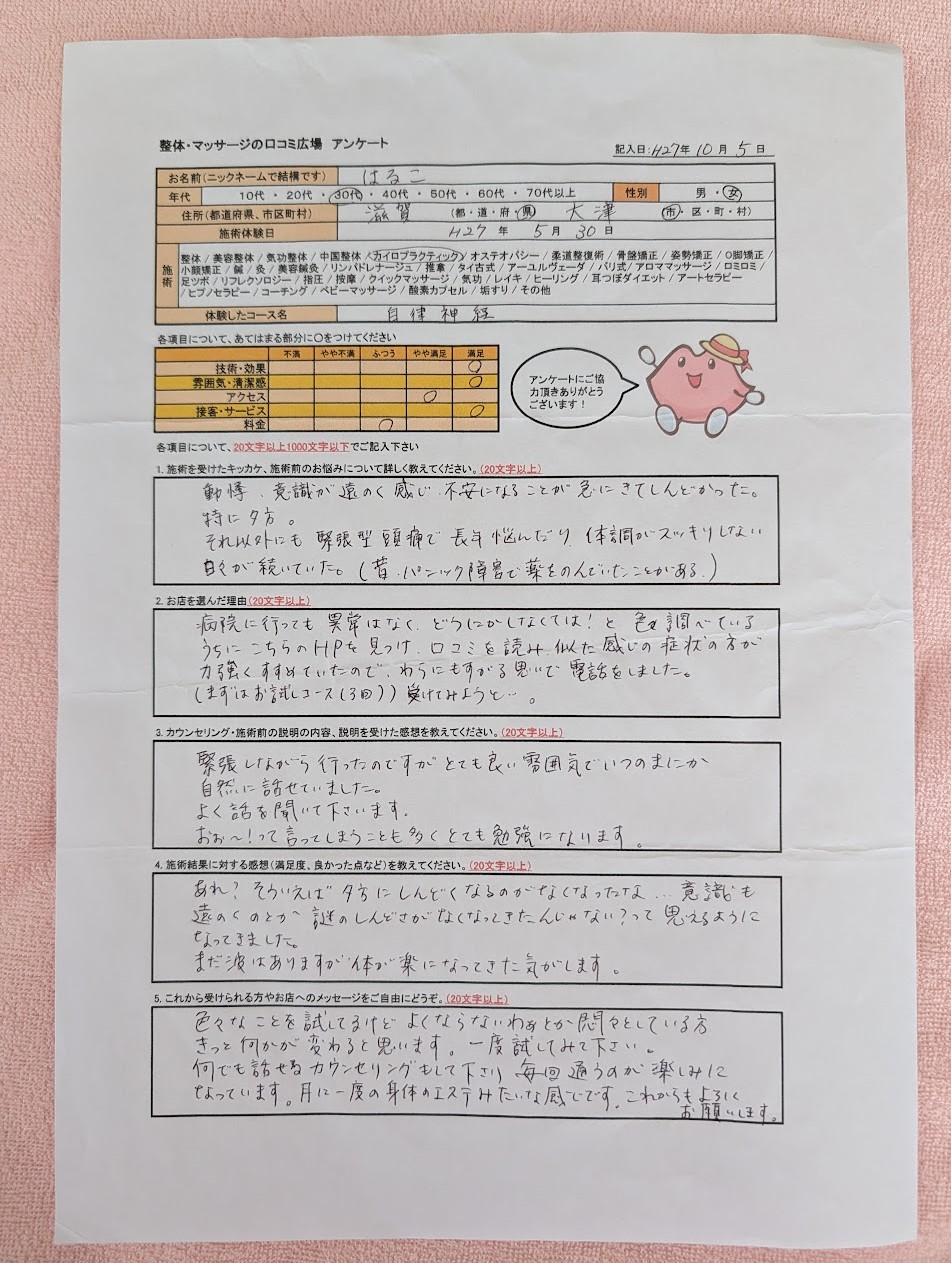 整体・マッサージの口コミ広場 アンケート
記入日:H27年 10 月 5 日
お名前(ニックネームで結構です) はるこ
年代 10代 ・ 20代 ・ 30代 ・ 40代 ・ 50代 ・ 60代 ・ 70代以上 性別 男 ・ 女
住所(都道府県、市区町村) 滋賀 (都・道・府・県) 大津 (市・区・町・村)
施術体験日 H27 年 5 月 30 日
施術
整体 / 美容整体 / 気功整体 / 中国整体 / カイロプラクティック / オステオパシー / 柔道整復術 / 骨盤矯正 / 姿勢矯正 / O脚矯正 /
小顔矯正 / 鍼 / 灸 / 美容鍼灸 / リンパドレナージュ / 推拿 / タイ古式 / アーユルヴェーダ / バリ式 / アロママッサージ / ロミロミ /
足ツボ / リフレクソロジー / 指圧 / 按摩 / クイックマッサージ / 気功 / レイキ / ヒーリング / 耳つぼダイエット / アートセラピー
/ ヒプノセラピー / コーチング / ベビーマッサージ / 酸素カプセル / 垢すり / その他
体験したコース名 自律神経
各項目について、あてはまる部分に〇をつけてください
不満 やや不満 ふつう やや満足 満足
技術・効果 〇
雰囲気・清潔感 〇
アクセス 〇
接客・サービス 〇
料金 〇
アンケートにご協
力頂きありがとう
ございます!
各項目について、20文字以上1000文字以下でご記入下さい
1. 施術を受けたキッカケ、施術前のお悩みについて詳しく教えてください。(20文字以上)
動悸、意識が遠のく感じ、不安になることが急にきてしんどかった。
特に夕方。
それ以外にも 緊張型頭痛で 長年悩んだり、体調がスッキリしない
日々が続いていた。(昔、パニック障害で薬をのんでいたことがある。)
2. お店を選んだ理由(20文字以上)
病院に行っても 異常はなく、どうにかしなくては!と 色々調べている
うちに こちらのHPを見つけ、口コミを読み 似た感じの症状の方が
力強くすすめていたので、わらにもすがる思いで 電話をしました。
(まずはお試しコース(3回)) 受けてみようと…。
3. カウンセリング・施術前の説明の内容、説明を受けた感想を教えてください。(20文字以上)
緊張しながら行ったのですが とても良い雰囲気でいつのまにか
自然に話せていました。
よく話を聞いて下さいます。
おぉ〜!って言ってしまうことも多くとても勉強になります。
4. 施術結果に対する感想(満足度、良かった点など)を教えてください。(20文字以上)
あれ? そういえば 夕方にしんどくなるのがなくなったな… 意識も
遠のくのとか 謎のしんどさがなくなってきたんじゃない?って 思えるように
なってきました。
まだ波はありますが 体が楽になってきた気がします。
5. これから受けられる方やお店へのメッセージをご自由にどうぞ。(20文字以上)
色々なことを試してるけど よくならないわぁとか 悶々としている方
きっと何かが変わると思います。一度試してみて下さい。
何でも話せるカウンセリングもして下さり 毎回通うのが楽しみに
なっています。月に一度の身体のエステみたいな感じです。これからもよろしく
お願いします。